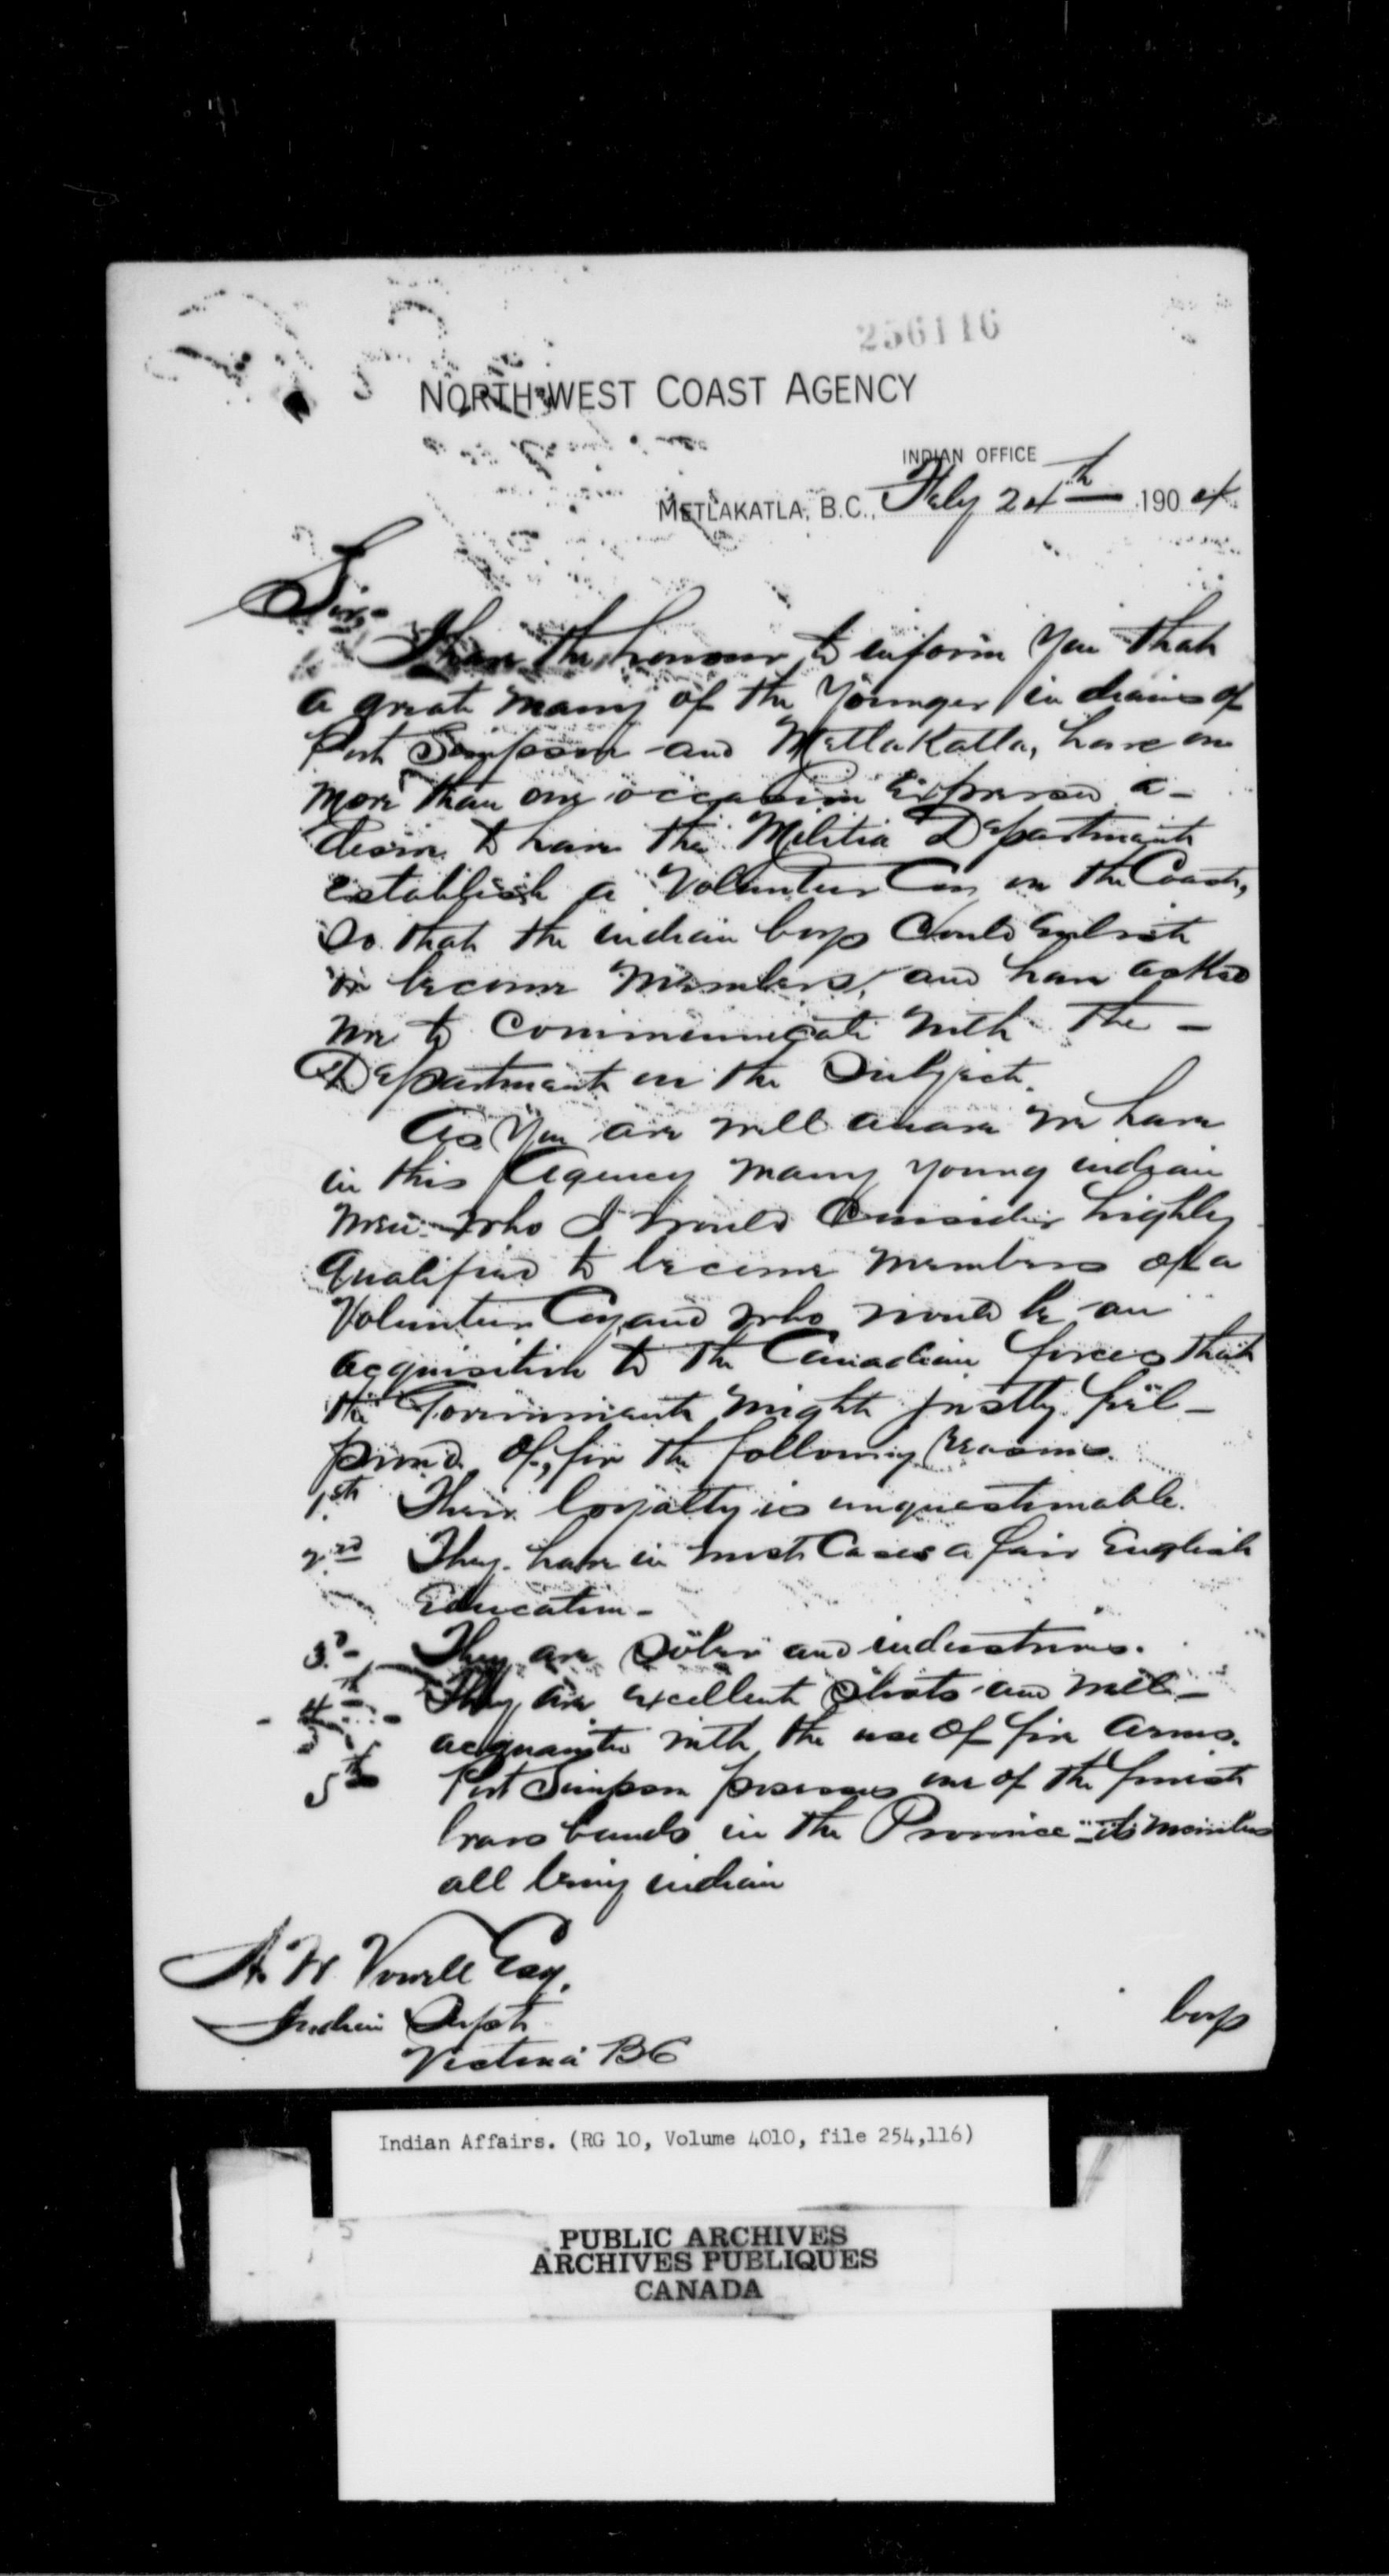 256116
NORTH WEST COAST AGENCY
INDIAN OFFICE
METLAKATLA, B.C., Feby 24th 1904
Sir,-
I have the honour to inform you that
a great many of the Younger indians of
Port Simpson and Metlakatla, have on
more than one occasion Expressed a -
desire to have the Militia Department
establish a Volunteer Coy on the Coast,
So that the indian boys Could Enlist
or become Members, and have asked
me to Communicate with the -
Department on the Subject.
As You are well aware we have
in this Agency many young indian
men who I would Consider highly
qualified to become members of a
Volunteer Coy, and who would be an
acquisition to the Canadian forces that
the Government might justly feel -
proud of, for the following reasons.
1st Their loyalty is unquestionable.
2nd They have in most Cases a fair English
Education -
3d - They are Sober and industrious.
4th - They are excellent Shots and well -
acquainted with the use of fire arms.
5th Port Simpson possesses one of the finest
brass bands in the Province - its members
all being indian
A. W. Vowell Esq.
Indian Supt
Victoria BC
boys
Indian Affairs. (RG 10, Volume 4010, file 254,116)
PUBLIC ARCHIVES
ARCHIVES PUBLIQUES
CANADA